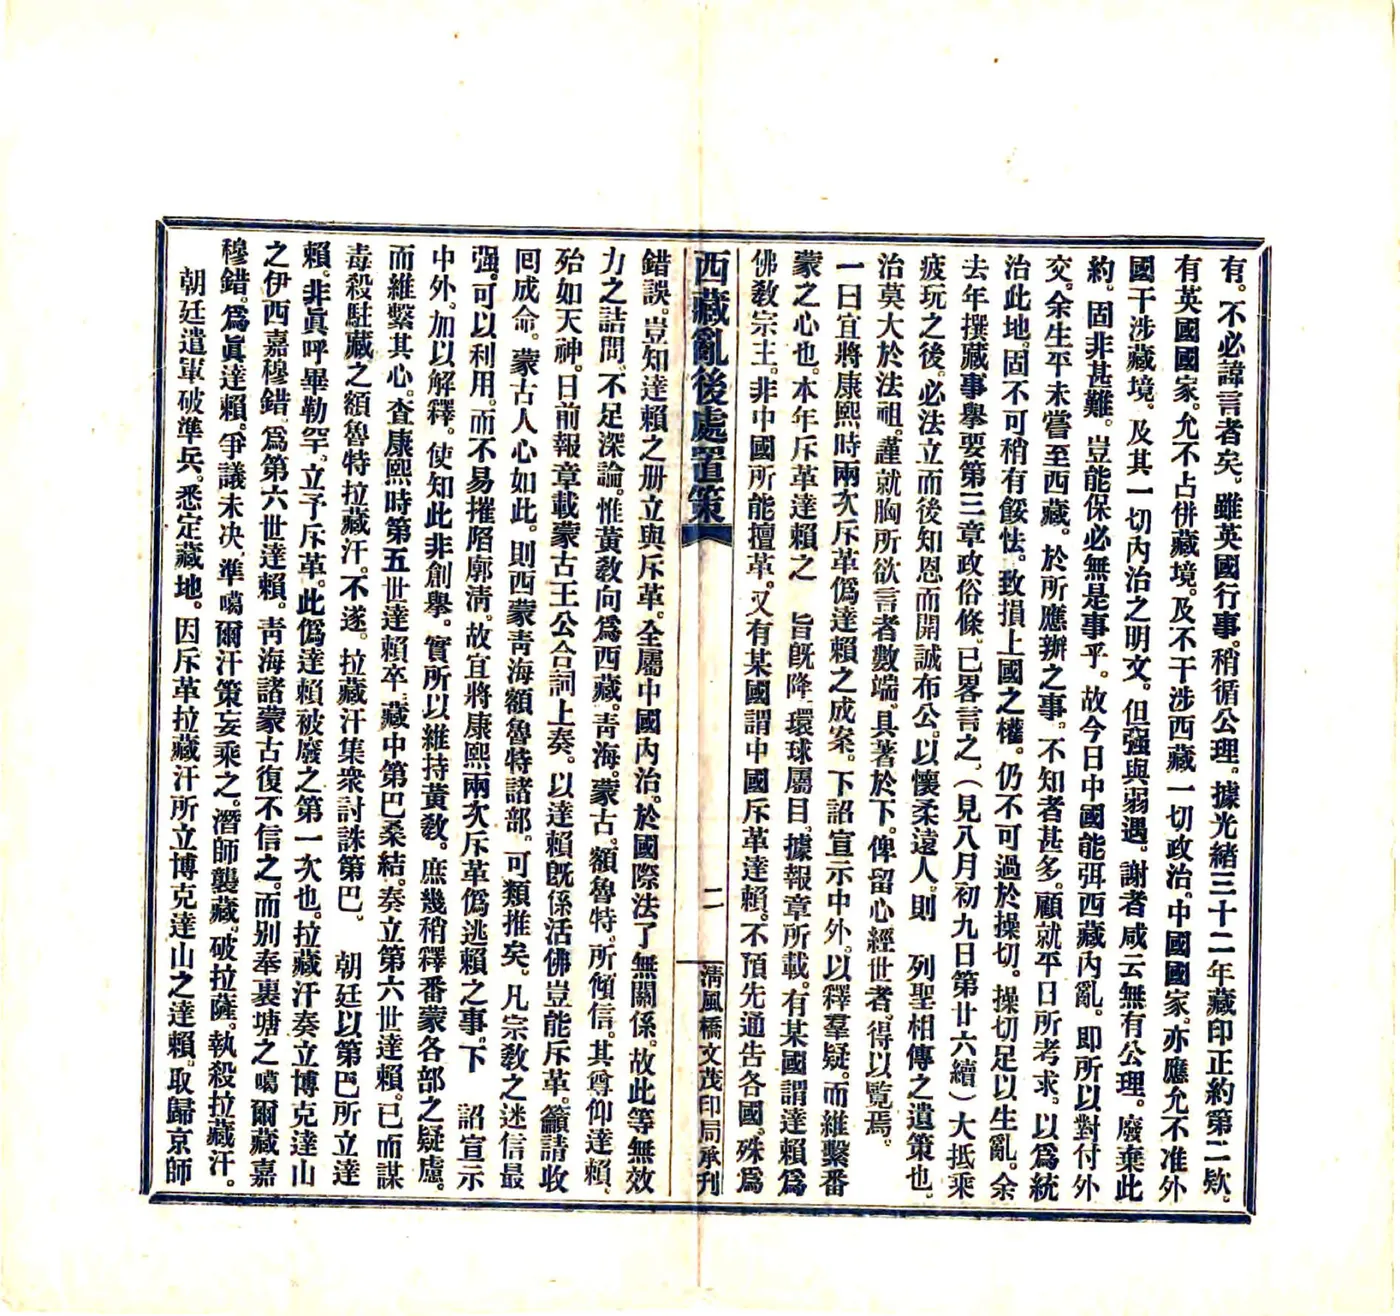 有。不必諱言者矣。雖英國行事。稍循公理。據光緒三十二年藏印正約第二欵。
有英國國家。允不占併藏境。及不干涉西藏一切政治。中國國家。亦應允不准外
國干涉藏境。及其一切內治之明文。但强與弱遇。謝者咸云無有公理。廢棄此
約。固非甚難。豈能保必無是事乎。故今日中國能弭西藏內亂。即所以對付外
交。余生平未嘗至西藏。於所應辦之事。不知者甚多。顧就平日所考求。以為統
治此地。固不可稍有餒怯。致損上國之權。仍不可過於操切。操切足以生亂。余
去年撰藏事舉要第三章政俗條。已畧言之。(見八月初九日第廿六續)大抵乘
疲玩之後。必法立而後知恩而開誠布公。以懷柔遠人。則　列聖相傳之遺策也。
治莫大於法祖。謹就胸所欲言者數端。具著於下。俾留心經世者。得以覽焉。
一曰宜將康熙時兩次斥革僞達賴之成案。下詔宣示中外。以釋羣疑。而維繫番
蒙之心也。本年斥革達賴之　旨旣降。環球屬目。據報章所載。有某國謂達賴爲
佛敎宗主。非中國所能擅革。又有某國謂中國斥革達賴。不預先通告各國。殊爲
西藏亂後處置策
二
淸風橋文茂印局承刋
錯誤。豈知達賴之册立與斥革。全屬中國內治。於國際法了無關係。故此等無效
力之詰問。不足深論。惟黃敎向爲西藏。靑海。蒙古。額魯特。所傾信。其尊仰達賴。
殆如天神。日前報章載蒙古王公合詞上奏。以達賴旣係活佛豈能斥革。籲請收
囘成命。蒙古人心如此。則西蒙靑海額魯特諸部。可類推矣。凡宗敎之迷信最
强。可以利用。而不易摧陷廓淸。故宜將康熙兩次斥革僞逃賴之事。下　詔宣示
中外。加以解釋。使知此非創舉。實所以維持黃敎。庶幾稍釋番蒙各部之疑慮。
而維繫其心。査康熙時第五世達賴卒。藏中第巴桑結。奏立第六世達賴。已而謀
毒殺駐藏之額魯特拉藏汗。不遂。拉藏汗集衆討誅第巴。　朝廷以第巴所立達
賴。非眞呼畢勒罕。立予斥革。此僞達賴被廢之第一次也。拉藏汗奏立博克達山
之伊西嘉穆錯。爲第六世達賴。靑海諸蒙古復不信之。而別奉裏塘之噶爾藏嘉
穆錯。爲眞達賴。爭議未决。準噶爾汗策妄乘之。潛師襲藏。破拉薩。執殺拉藏汗。
朝廷遣軍破準兵。悉定藏地。因斥革拉藏汗所立博克達山之達賴。取歸京師